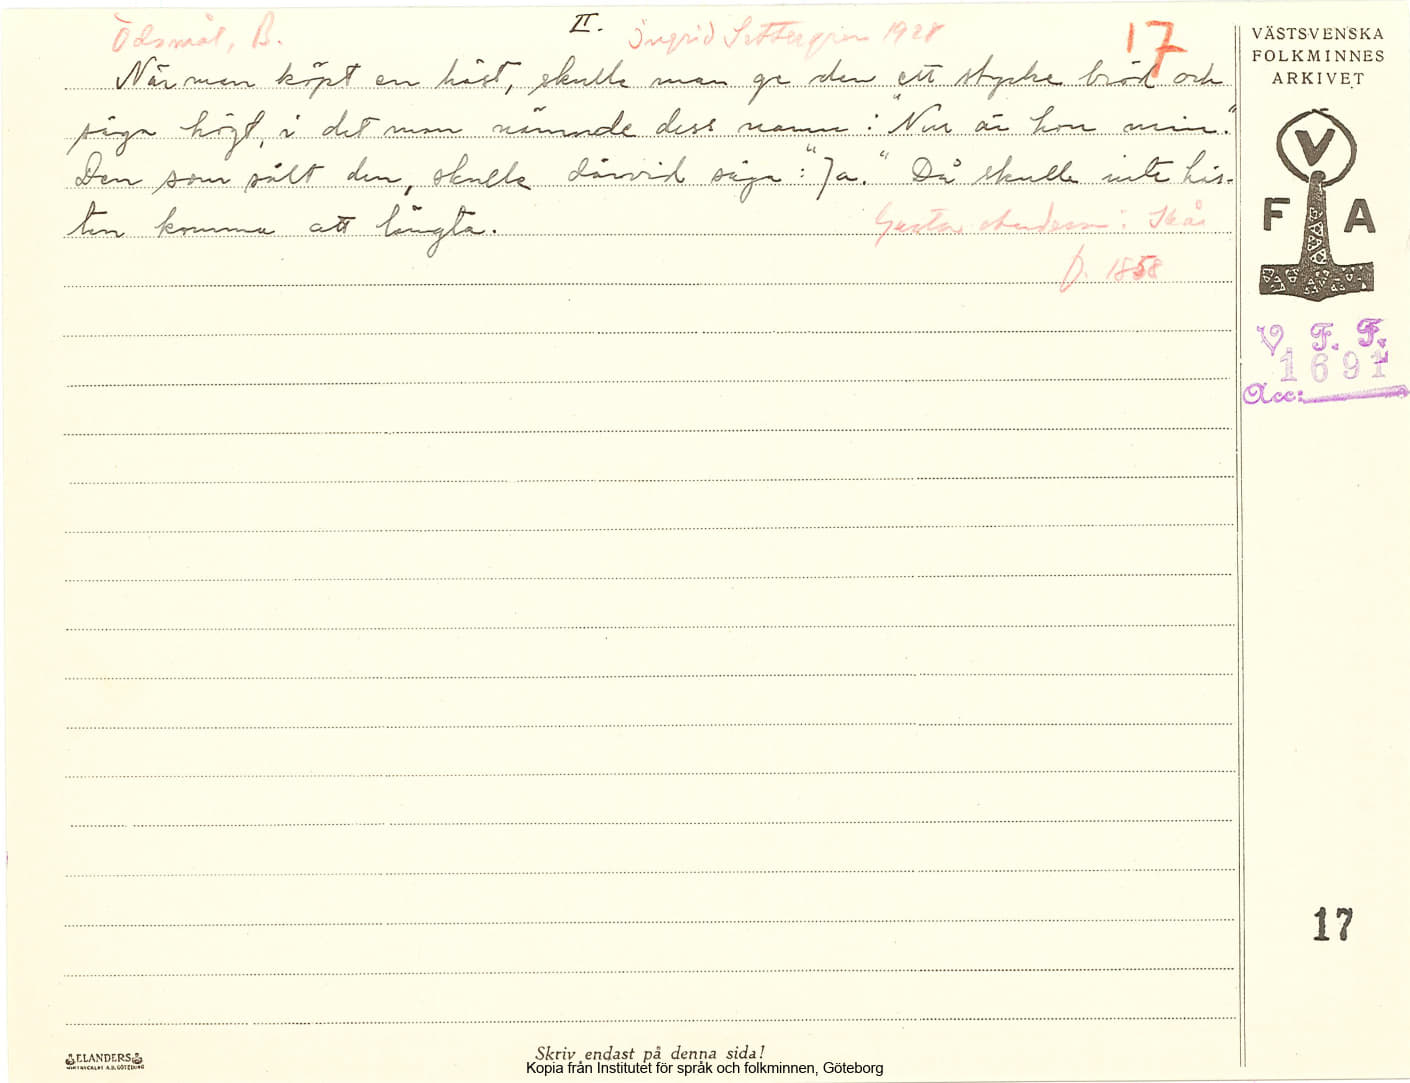 Ödsmål, B.
II.
Ingrid Settergren 1928
17
När man köpt en häst, skulle man ge den ett stycke bröd och
säga högt, i det man nämnde dess namn: "Nu är hon min."
Den som sålt den, skulle därvid säga: "Ja." Då skulle inte häs-
ten komma att längta.
Gustav Andersson: Skår
f. 1858
VÄSTSVENSKA
FOLKMINNES
ARKIVET
V
F A
V. F. F.
1691
Acc:
17
ELANDERS
Skriv endast på denna sida!
Kopia från Institutet för språk och folkminnen, Göteborg